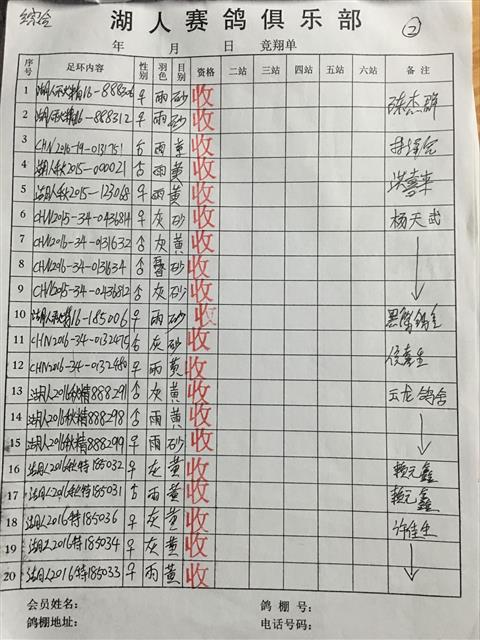 综合
湖人赛鸽俱乐部
②
年 月 日 竞翔单
序号 足环内容 性别 羽色 目别 资格 二站 三站 四站 五站 六站 备注
1 16-888306 ♀ 雨 砂 收 陈杰群
2 16-888312 ♀ 雨 砂 收
3 CHN2016-19-0131751 雨 黄 收
4 湖人秋2015-000021 雨 黄 收 洪喜来
5 湖人秋2015-123068 ♀ 雨 黄 收
6 CHN2015-34-0436814 ♀ 灰 砂 收 杨天武
7 CHN2016-34-0131632 灰 黄 收
8 CHN2016-34-0131634 砂 收
9 CHN2015-34-0436812 灰 砂 收
10 16-185006 ♀ 雨 砂 收
11 CHN2016-34-0132475 灰 砂 收
12 CHN2016-34-0132480 ♀ 雨 黄 收
13 湖人2016秋精888291 灰 黄 收 云龙鸽舍
14 湖人2016秋精888298 雨 黄 收
15 湖人2016秋精888299 ♀ 雨 砂 收
16 湖人2016秋特185032 ♀ 灰 黄 收 赖元鑫
17 湖人2016秋特185031 雨 黄 收 赖元鑫
18 湖人2016特185036 ♀ 灰 黄 收 许佳生
19 湖人2016特185034 ♀ 灰 黄 收
20 湖人2016特185033 ♀ 雨 黄 收
会员姓名: 鸽棚号:
鸽棚地址: 电话号码: